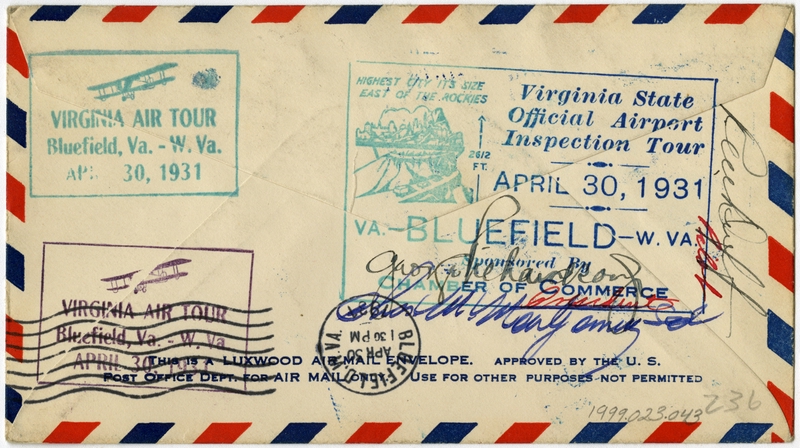 VIRGINIA AIR TOUR
Bluefield, Va. - W. Va.
APR 30, 1931
HIGHEST CITY ITS SIZE
EAST OF THE ROCKIES
2612
FT.
Virginia State
Official Airport
Inspection Tour
APRIL 30, 1931
VA.-BLUEFIELD-W. VA
Sponsored By
CHAMBER OF COMMERCE
Geo. Richardson
President
VIRGINIA AIR TOUR
Bluefield, Va. - W. Va
APRIL 30, 1931
BLUEFIELD
W.VA.
APR 30
1 30 PM
1931
THIS IS A LUXWOOD AIR MAIL ENVELOPE. APPROVED BY THE U. S.
POST OFFICE DEPT. FOR AIR MAIL ONLY. USE FOR OTHER PURPOSES NOT PERMITTED
1999.023.043
236